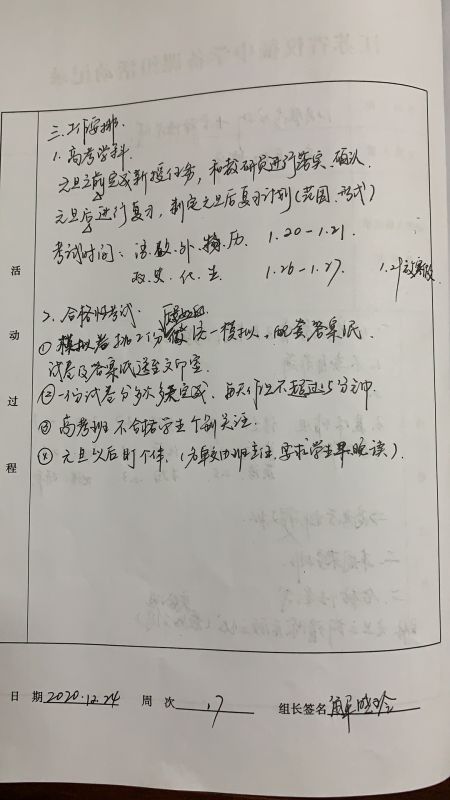 三.工作安排.
1.高考学科.
元旦之前完成新授任务,和教研员进行落实、确认.
元旦后进行复习,制定元旦后复习计划(范围、形式)
考试时间:语.数.外.物.历. 1.20-1.21.
政.史.化.生 1.26-1.27. 1.29
2.合格性考试.
① 模拟卷 2份 统一模拟,配套答案纸
试卷及答案纸送至文印室.
② 一份试卷分多次完成,每天作业不超过15分钟.
③ 高考班不合格学生个别关注.
④ 元旦以后盯个体.(班主任.要求学生早晚读).
活
动
过
程
日 期 2020.12.24 周 次 17 组长签名